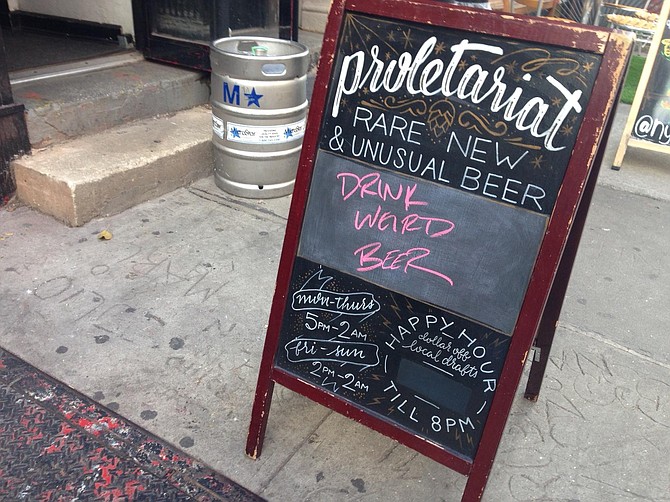 proletariat
RARE NEW
& UNUSUAL BEER
DRINK
WEIRD
BEER
mon-thurs
5PM-2AM
fri-sun
2PM-2AM
HAPPY HOUR
dollar off
local drafts
TILL 8PM
M★
@ny